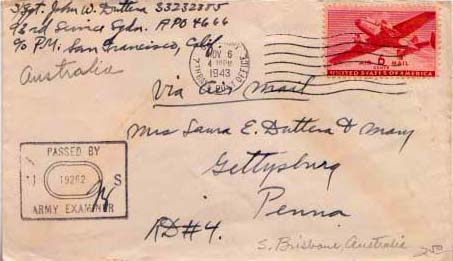 S/Sgt. John W. Duttera 33232855
93rd Service Sqdn. APO 4664
c/o P.M. San Francisco, Calif.
Australia
NOV 6
4 30PM
1943
6
AIR MAIL
CENTS
UNITED STATES OF AMERICA
Via Air Mail
Mrs Laura E. Duttera & Mary
Gettysburg
Penna
RD#4.
PASSED BY
U S
19262
ARMY EXAMINER
S. Brisbane, Australia